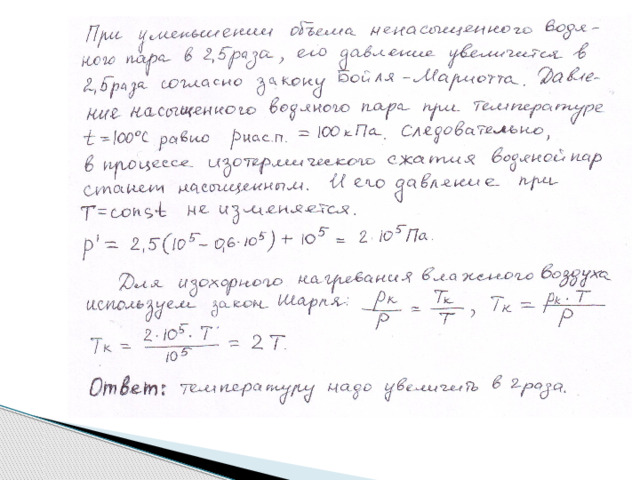 При уменьшении объема ненасыщенного водя-
ного пара в 2,5 раза, его давление увеличится в
2,5 раза согласно закону Бойля-Мариотта. Давле-
ние насыщенного водяного пара при температуре
t=100°C равно pнас.п. = 100 кПа. Следовательно,
в процессе изотермического сжатия водяной пар
станет насыщенным. И его давление при
T=const не изменяется.
p' = 2,5(10⁵ – 0,6·10⁵) + 10⁵ = 2·10⁵ Па.
Для изохорного нагревания влажного воздуха
используем закон Шарля: pк/p = Tк/T, Tк = pк·T/p
Tк = 2·10⁵·T/10⁵ = 2T.
Ответ: температуру надо увеличить в 2 раза.